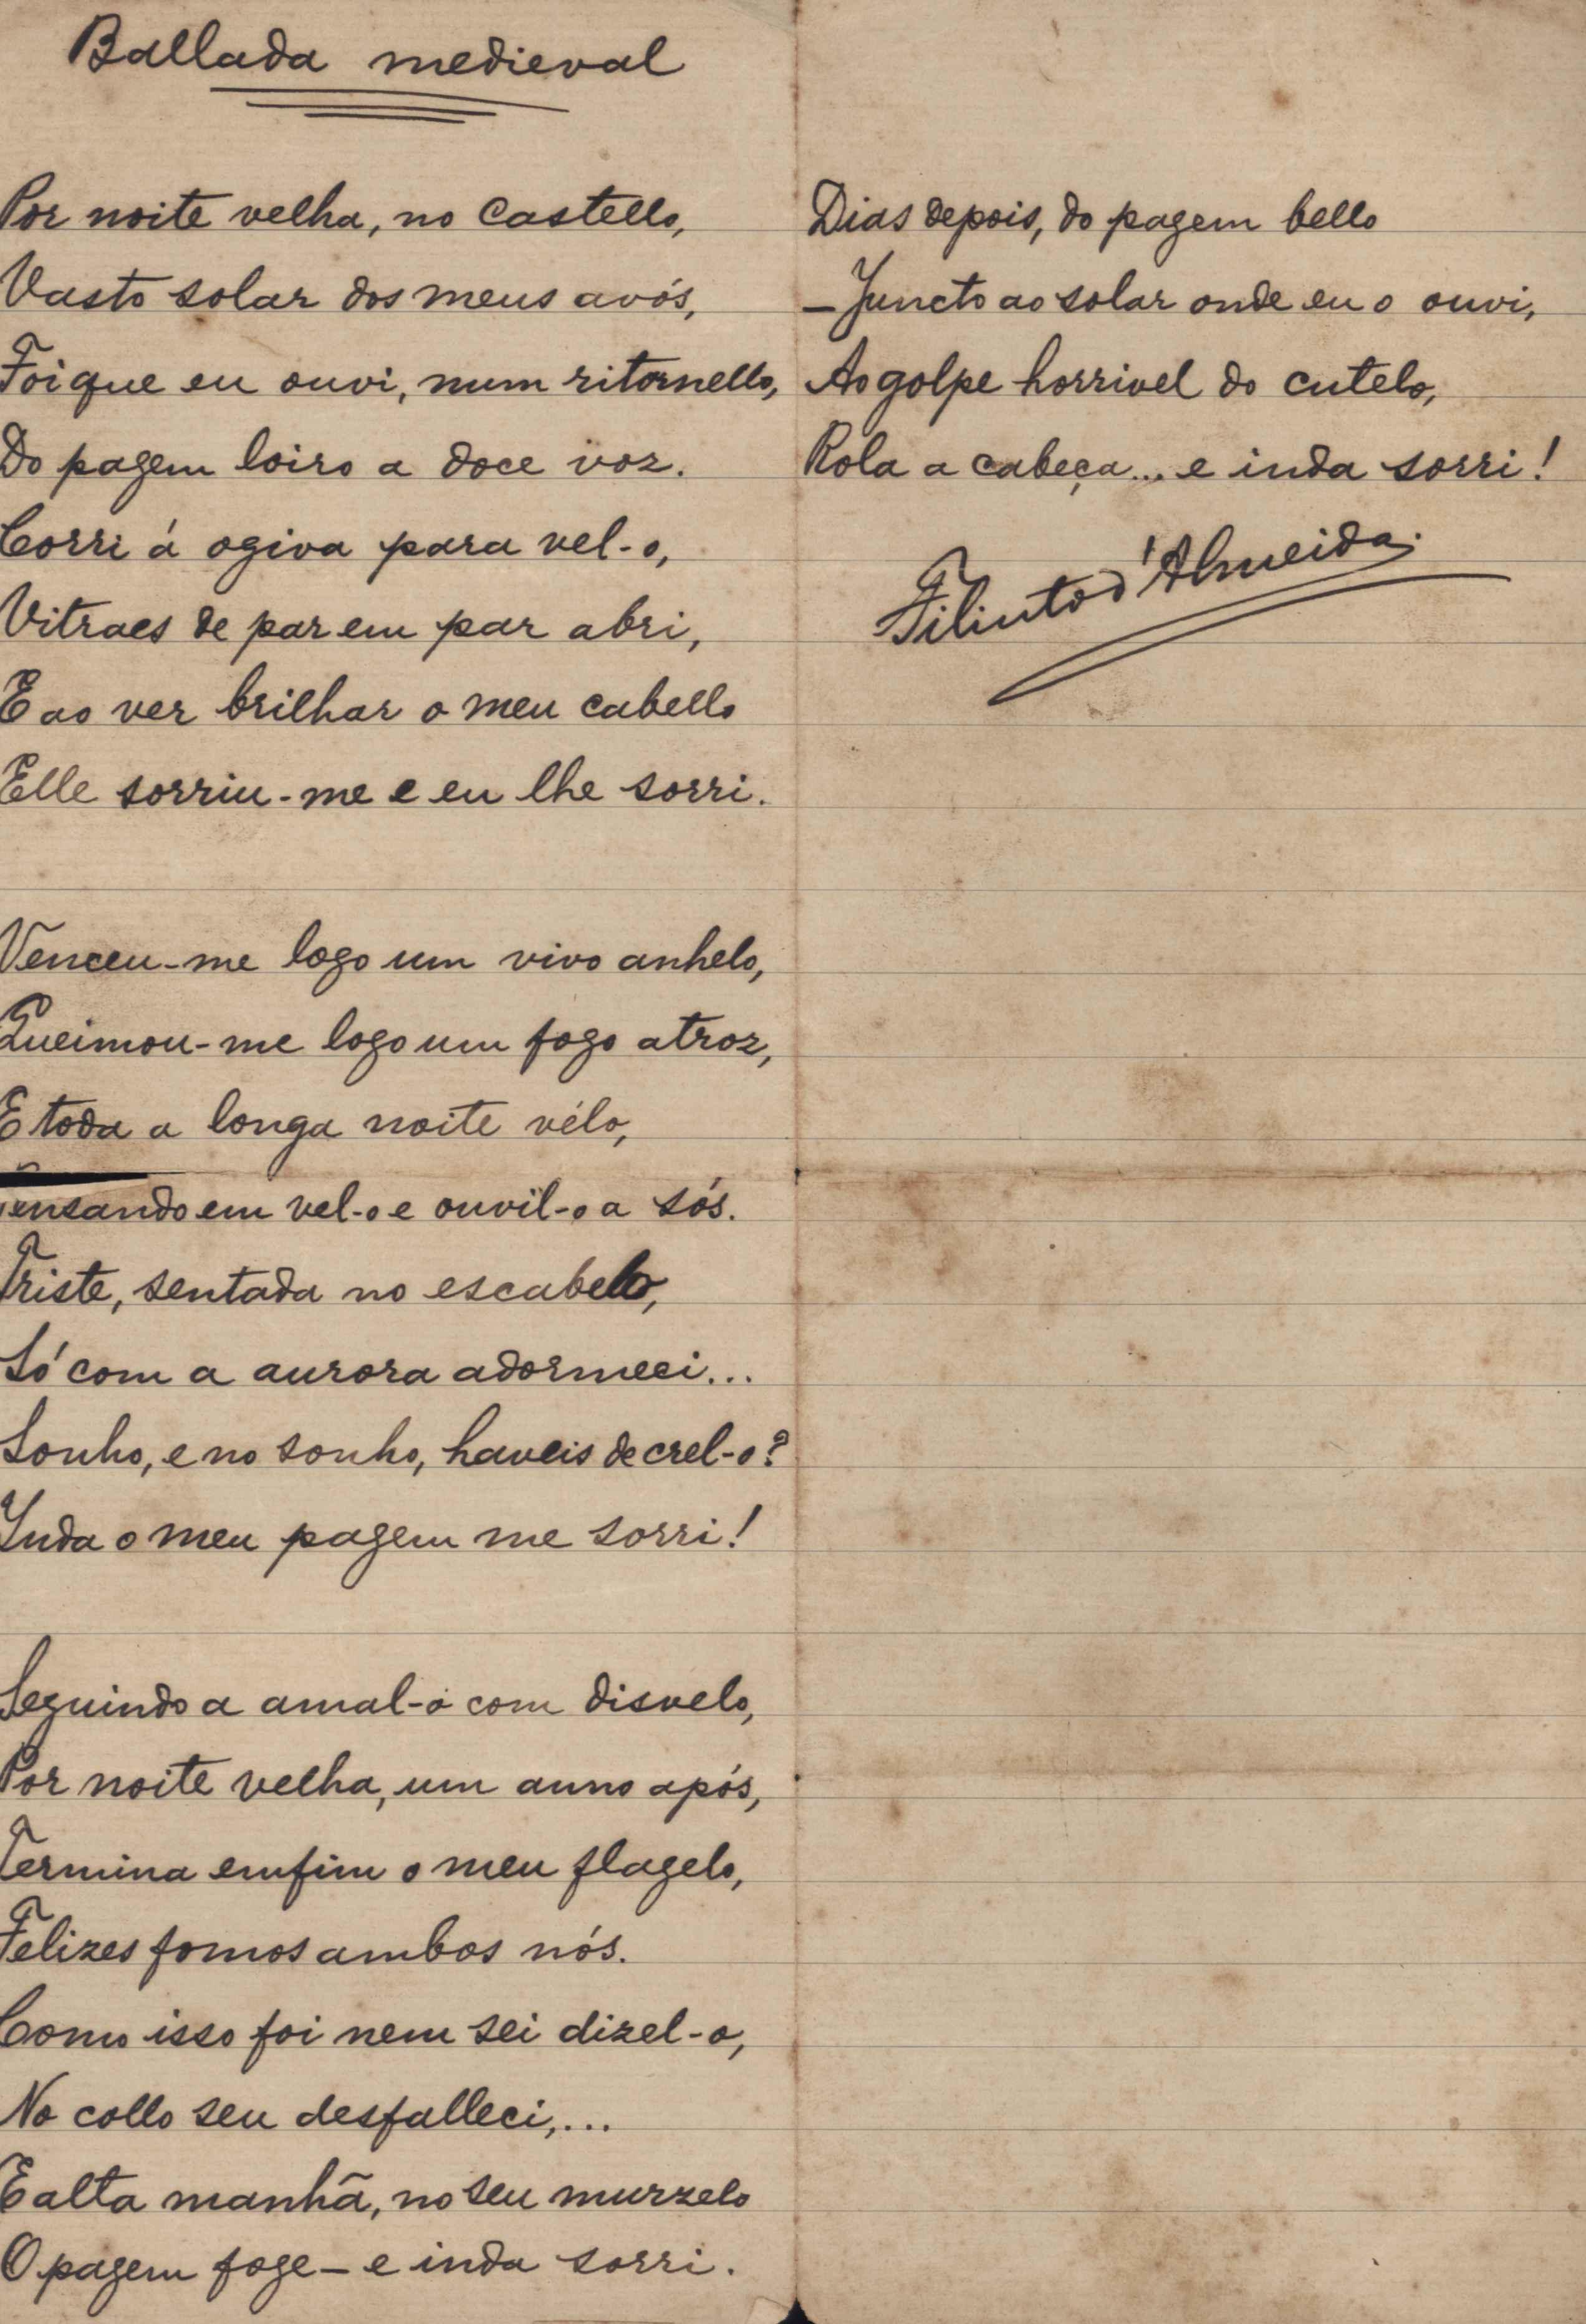 Ballada medieval
Por noite velha, no castello,
Vasto solar dos meus avós,
Foi que eu ouvi, num ritornello,
Do pagem loiro a doce voz.
Corri á ogiva para vel-o,
Vitraes de par em par abri,
E ao ver brilhar o meu cabello
Elle sorriu-me e eu lhe sorri.
Venceu-me logo um vivo anhelo,
Queimou-me logo um fogo atroz,
E toda a longa noite vélo,
Pensando em vel-o e ouvil-o a sós.
Triste, sentada no escabelo,
Só com a aurora adormeci...
Sonho, e no sonho, haveis de crel-o?
Inda o meu pagem me sorri!
Seguindo a amal-o com disvelo,
Por noite velha, um anno após,
Termina emfim o meu flagelo,
Felizes fomos ambos nós.
Como isso foi nem sei dizel-o,
No collo seu desfalleci,...
E alta manhã, no seu murzelo
O pagem foge — e inda sorri.
Dias depois, do pagem bello
— Juncto ao solar onde eu o ouvi,
Ao golpe horrivel do cutelo,
Rola a cabeça... e inda sorri!
Filinto d'Almeida.